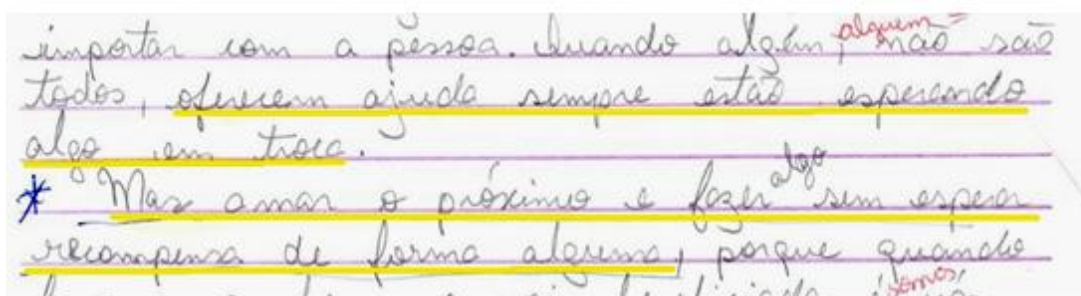 alguem =
importar com a pessoa. Quando algún, não são
todos, oferecem ajuda sempre estão esperando
algo em troca.
algo
* Mas amar o próximo e fazer sem esperar
recompensa de forma alguma, porque quando
somos,